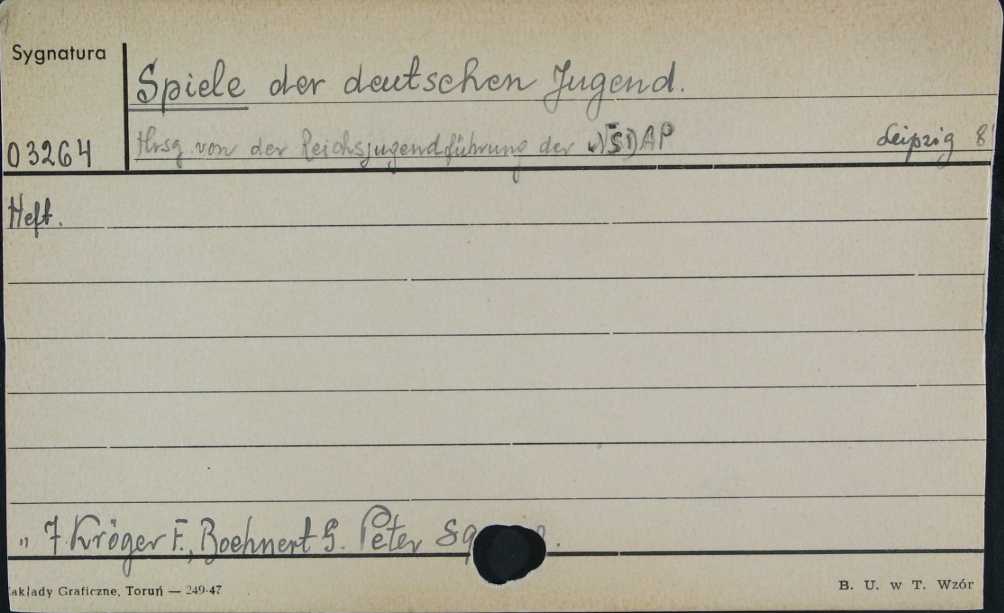 Sygnatura
Spiele der deutschen Jugend.
03264 Hrsg von der Reichsjugendführung der NSDAP Leipzig 8
Heft.
„ 7 Kröger F., Boehnert G. Peter
akłady Graficzne, Toruń — 249-47 B. U. w T. Wzór